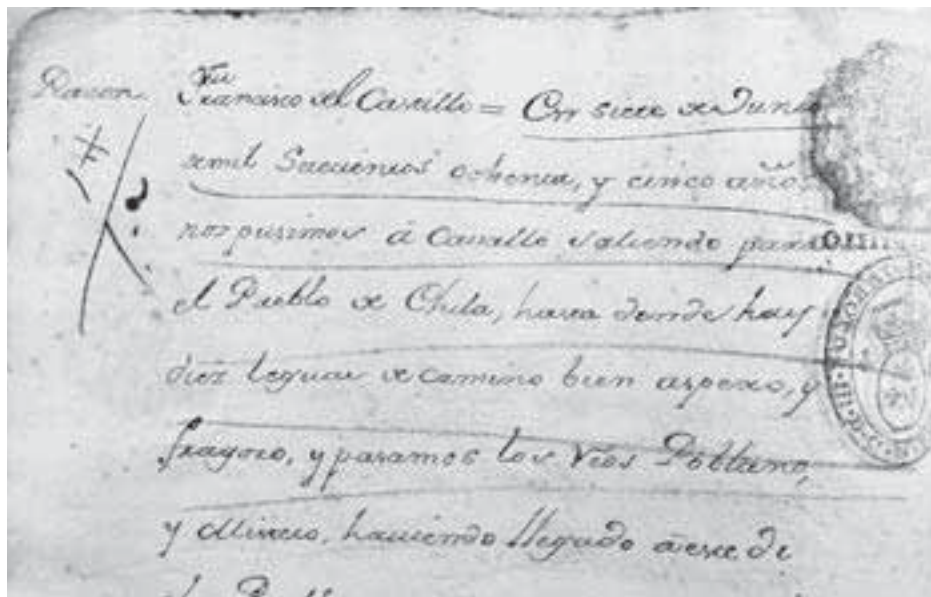 Razon.
Francisco del Castillo = En siete de Junio
de mil Setecientos ochenta, y cinco años
nos pusimos á Cavallo saliendo para
el Pueblo de Chila, hasta donde hay
diez leguas de camino bien aspero, y
fragoso, y pasamos los Rios Poblano,
y Mixteco, haviendo llegado á este de